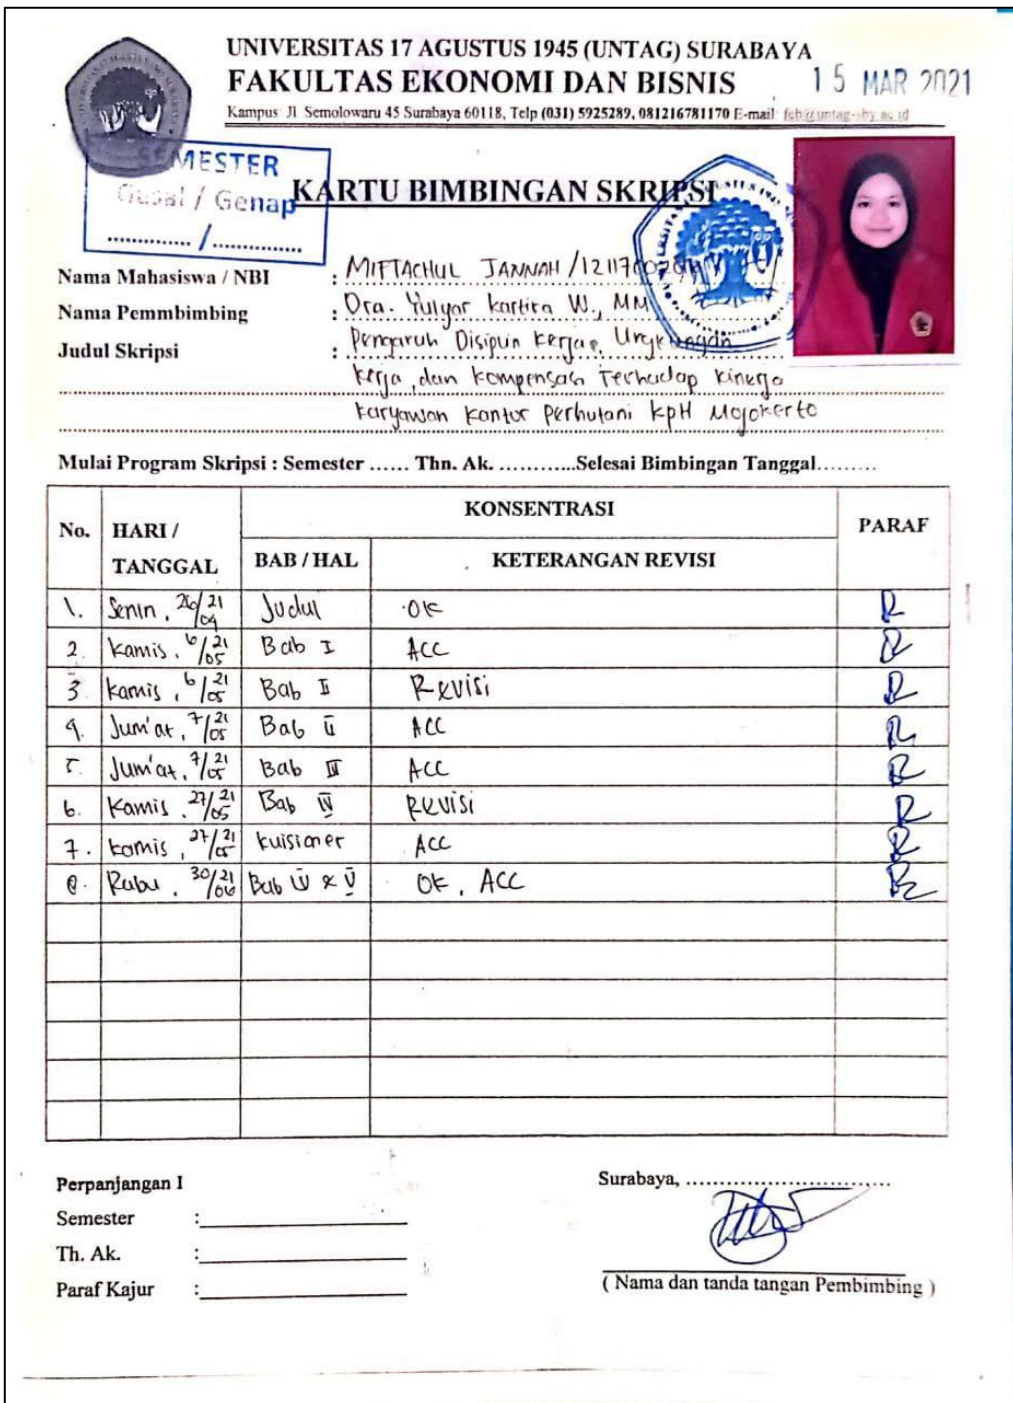 UNIVERSITAS 17 AGUSTUS 1945 (UNTAG) SURABAYA
FAKULTAS EKONOMI DAN BISNIS
15 MAR 2021
Kampus: Jl Semolowaru 45 Surabaya 60118, Telp (031) 5925289, 081216781170 E-mail: feb@untag-sby.ac.id
SEMESTER
Gasal / Genap
............. / .............
KARTU BIMBINGAN SKRIPSI
Nama Mahasiswa / NBI : MIFTACHUL JANNAH /
Nama Pemmbimbing : Dra. Yulyar Kartika W., MM
Judul Skripsi : Pengaruh Disiplin Kerja, Lingkungan
Kerja, dan Kompensasi Terhadap Kinerja
Karyawan Kantor Perhutani KPH Mojokerto
Mulai Program Skripsi : Semester ...... Thn. Ak. ............Selesai Bimbingan Tanggal.........
No. HARI / TANGGAL KONSENTRASI PARAF
BAB / HAL KETERANGAN REVISI
1. Senin, 26/04 21 Judul OK
2. Kamis, 6/05 21 Bab I ACC
3. Kamis, 6/05 21 Bab II Revisi
4. Jum'at, 7/05 21 Bab II ACC
5. Jum'at, 7/05 21 Bab III ACC
6. Kamis, 27/05 21 Bab IV Revisi
7. Kamis, 27/05 21 Kuisioner ACC
8. Rabu, 30/06 21 Bab IV & V OK, ACC
Perpanjangan I
Semester :
Th. Ak. :
Paraf Kajur :
Surabaya, ..............................
( Nama dan tanda tangan Pembimbing )